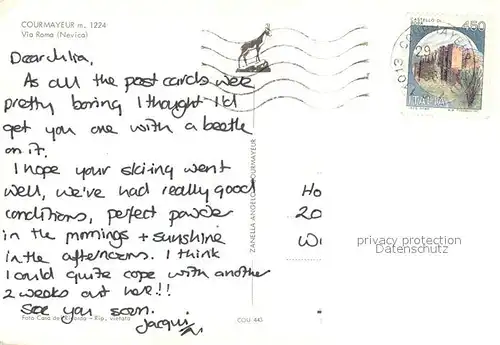 COURMAYEUR m. 1224
Via Roma (Nevica)
Dear Julia,
As all the post cards were
pretty boring I thought I'd
get you one with a beetle
on it.
I hope your skiing went
well, we've had really good
conditions, perfect powder
in the mornings + sunshine
in the afternoons. I think
I could quite cope with another
2 weeks out here!!
See you soon.
Jacqui
Rip. vietata
COU 443
ZANELLA ANGELO COURMAYEUR
450
ITALIA
29
11013 COURMAYEUR
Ho
20
Wi
privacy protection
Datenschutz